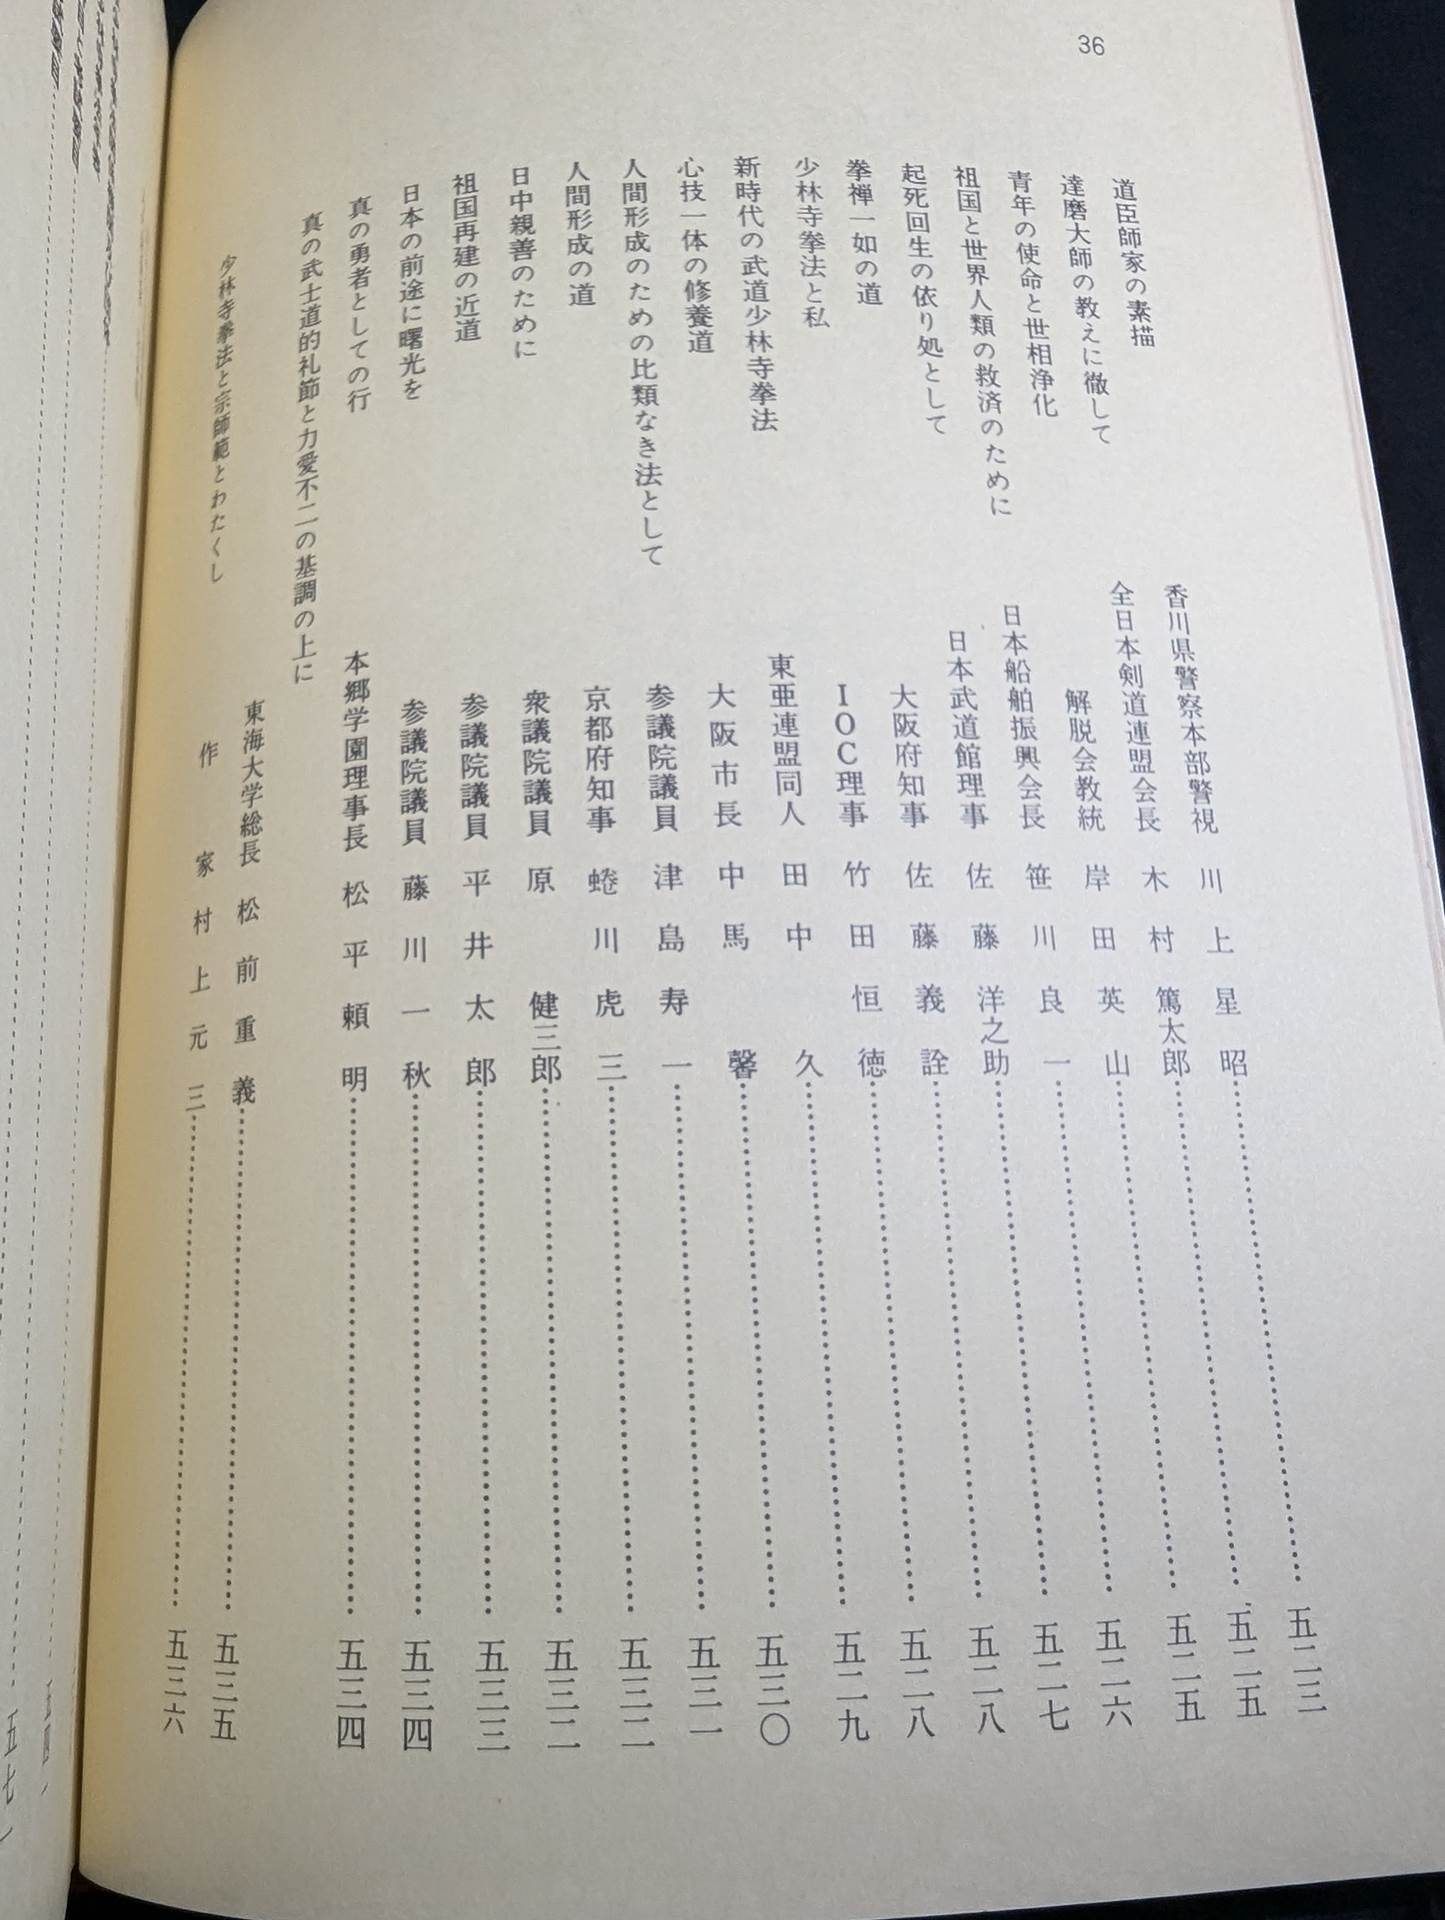 36
道臣師家の素描 香川県警察本部警視 川上星昭……五二三
達磨大師の教えに徹して 全日本剣道連盟会長 木村篤太郎……五二五
青年の使命と世相浄化 解脱会教統 岸田英山……五二五
祖国と世界人類の救済のために 日本船舶振興会長 笹川良一……五二六
起死回生の依り処として 日本武道館理事 佐藤洋之助……五二七
拳禅一如の道 大阪府知事 佐藤義詮……五二八
少林寺拳法と私 IOC理事 竹田恒徳……五二八
新時代の武道少林寺拳法 東亜連盟同人 田中久……五二九
心技一体の修養道 大阪市長 中馬馨……五三〇
人間形成のための比類なき法として 参議院議員 津島寿一……五三一
人間形成の道 京都府知事 蜷川虎三……五三二
日中親善のために 衆議院議員 原健三郎……五三二
祖国再建の近道 参議院議員 平井太郎……五三三
日本の前途に曙光を 参議院議員 藤川一秋……五三四
真の勇者としての行 本郷学園理事長 松平頼明……五三四
真の武士道的礼節と力愛不二の基調の上に 東海大学総長 松前重義……五三五
少林寺拳法と宗師範とわたくし 作家 村上元三……五三六